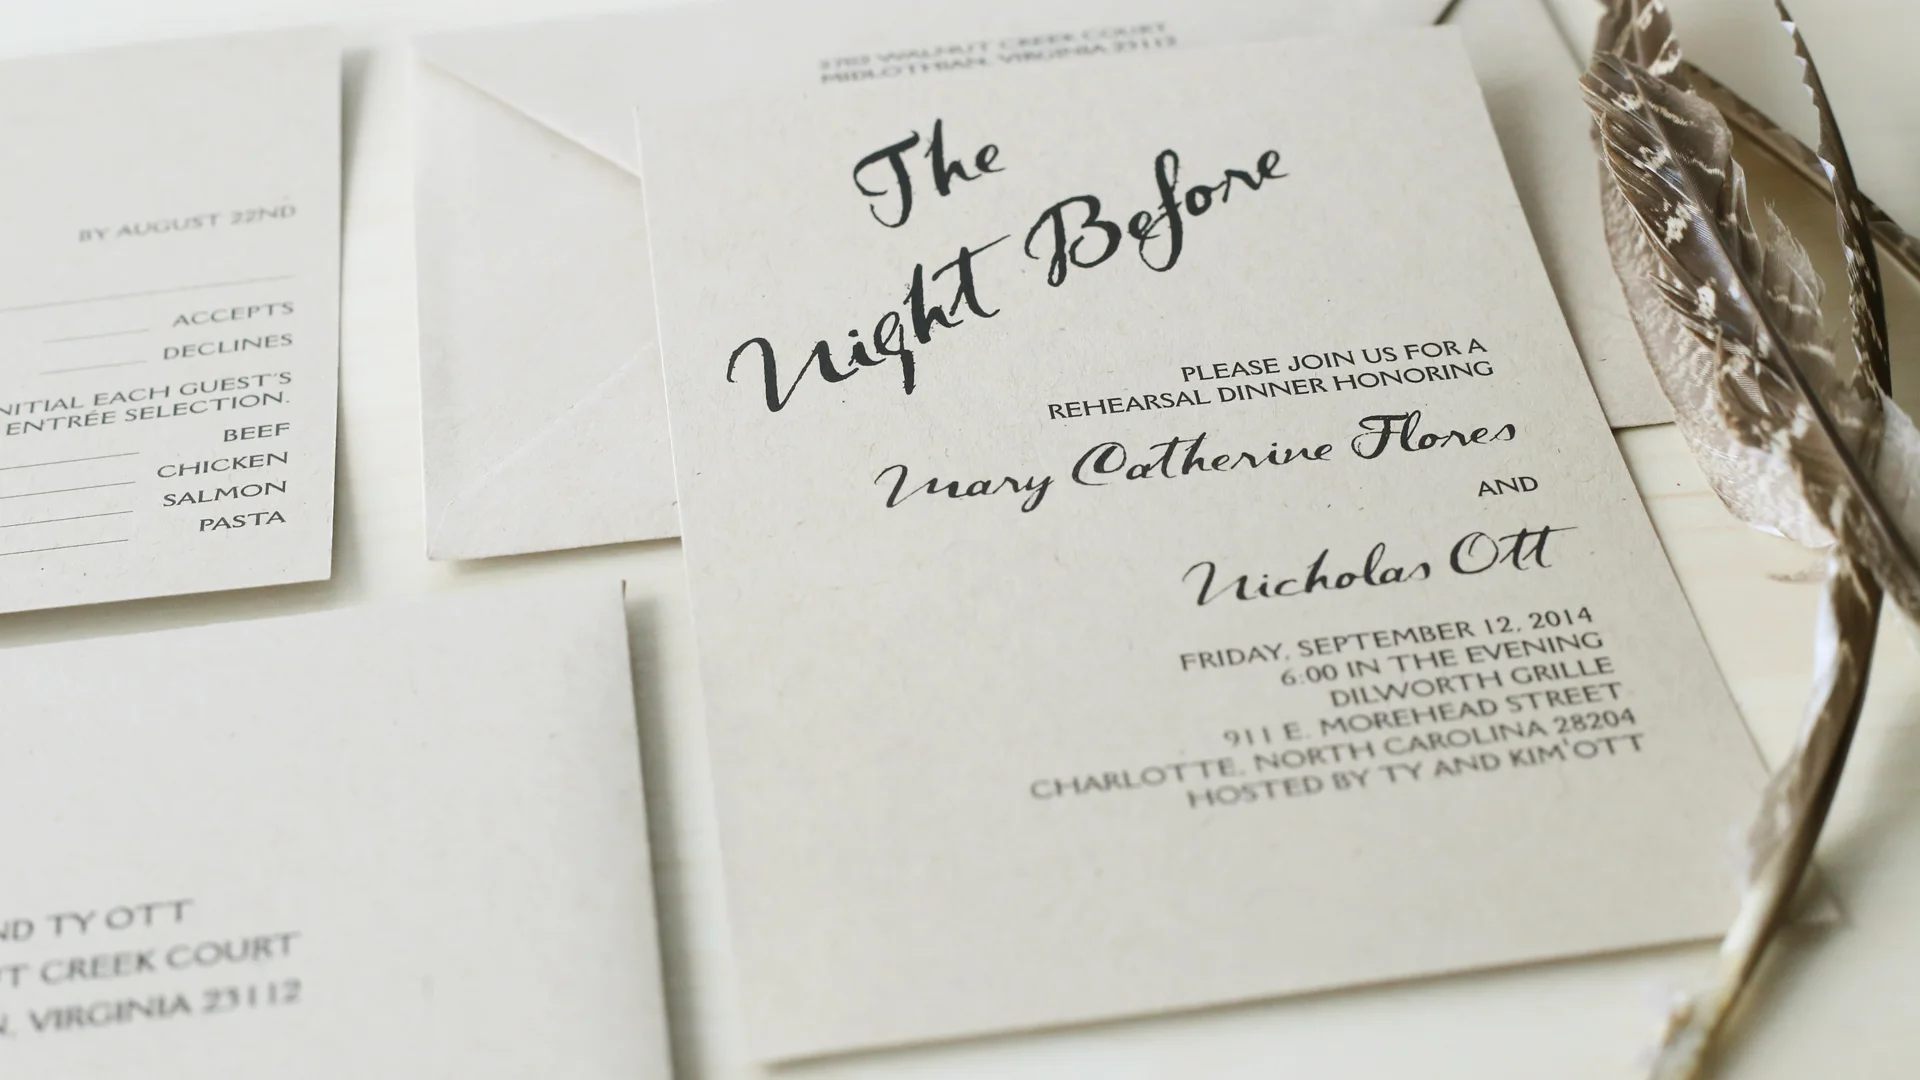 BY AUGUST 22ND
ACCEPTS
DECLINES
NITIAL EACH GUEST'S
ENTRÉE SELECTION.
BEEF
CHICKEN
SALMON
PASTA
WALNUT CREEK COURT
MIDLOTHIAN, VIRGINIA 23112
The
Night Before
PLEASE JOIN US FOR A
REHEARSAL DINNER HONORING
Mary Catherine Flores
AND
Nicholas Ott
FRIDAY, SEPTEMBER 12, 2014
6:00 IN THE EVENING
DILWORTH GRILLE
911 E. MOREHEAD STREET
CHARLOTTE, NORTH CAROLINA 28204
HOSTED BY TY AND KIM OTT
ND TY OTT
T CREEK COURT
N, VIRGINIA 23112